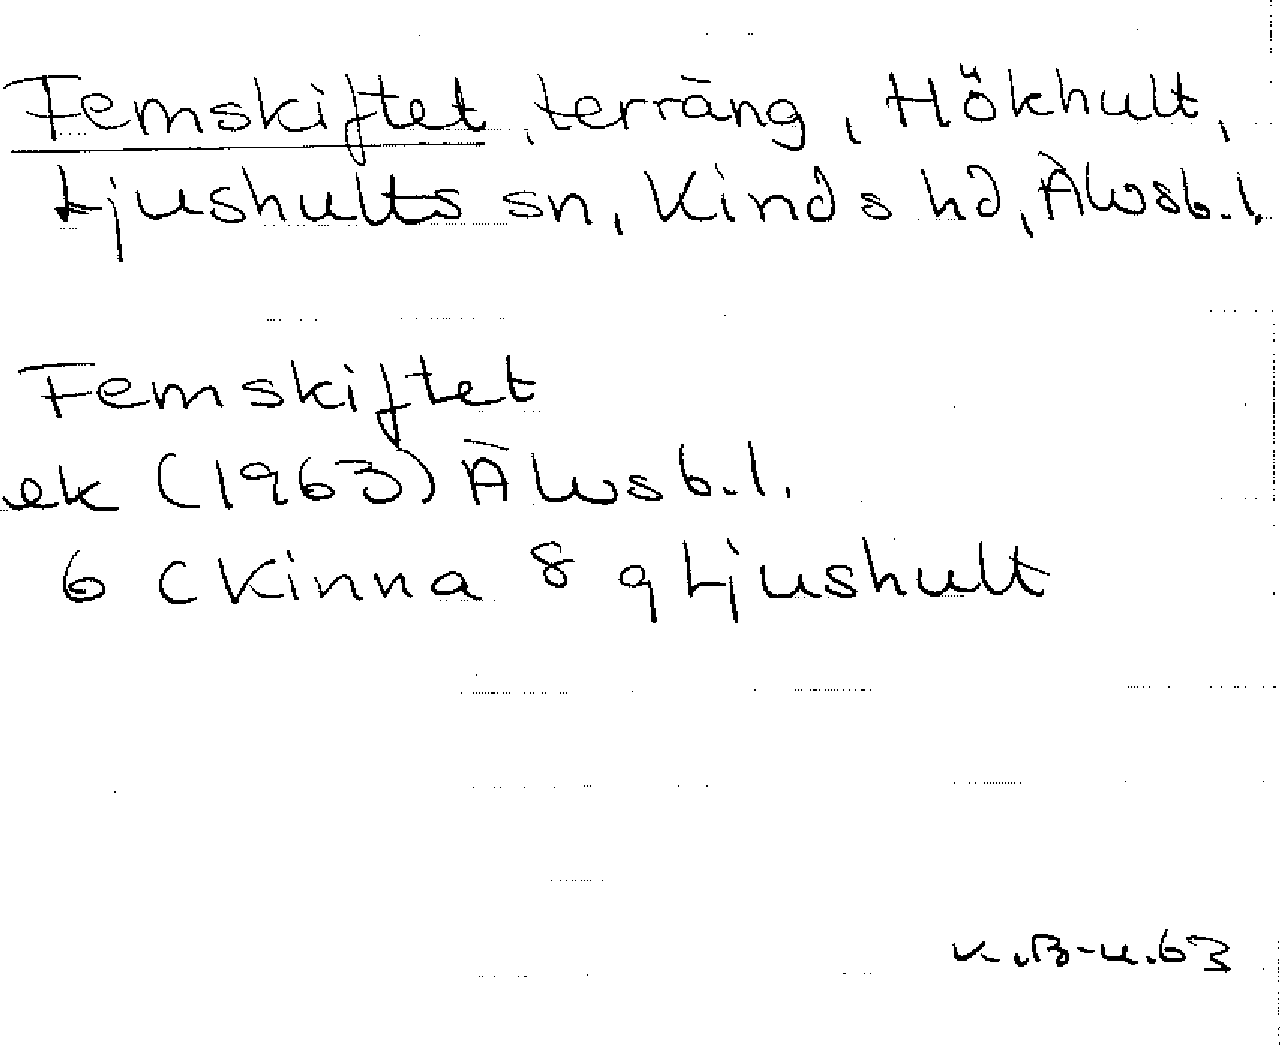 Femskiftet, terräng, Hökhult,
Ljushults sn, Kinds hd, Älvsb.l.
Femskiftet
ek (1963) Älvsb.l.
6 C Kinna 8 g Ljushult
K.B-u.63